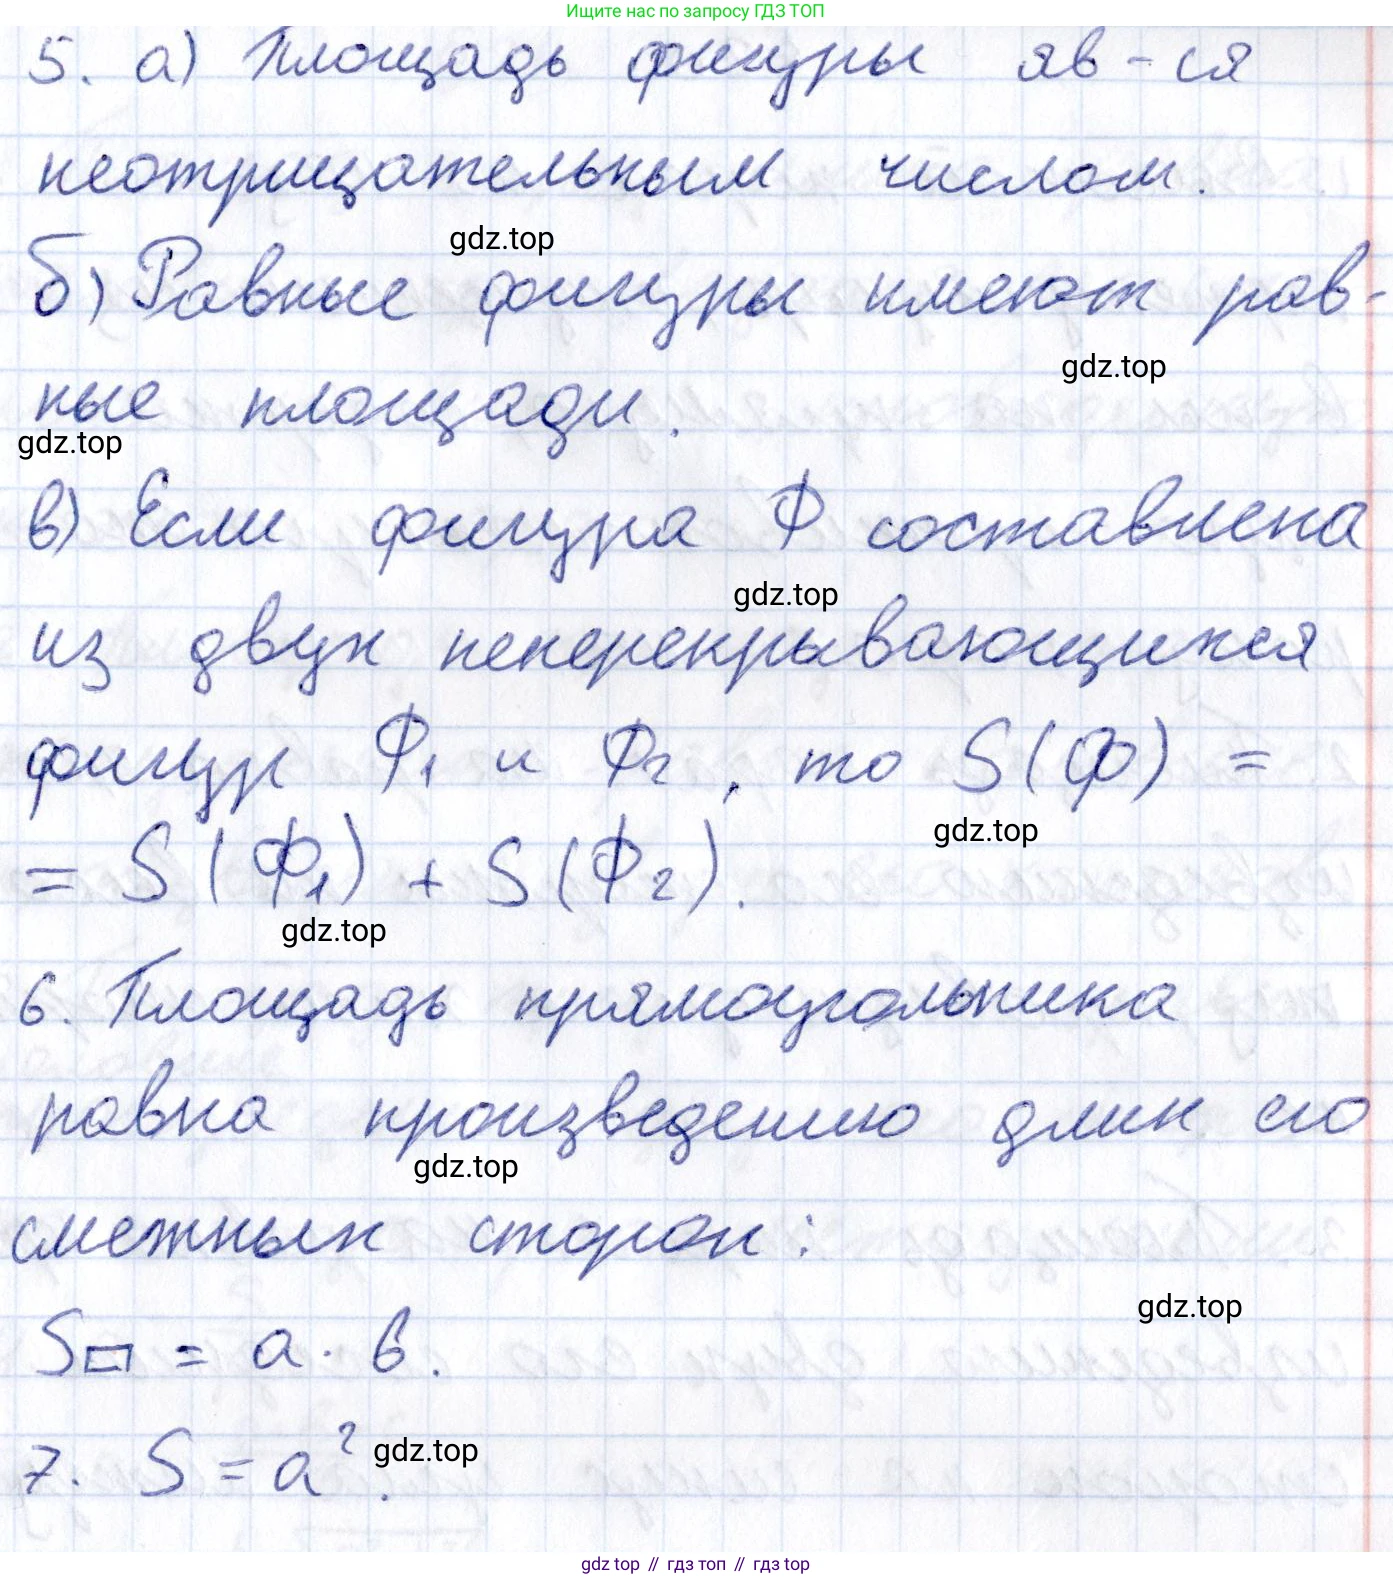 Ищите нас по запросу ГДЗ ТОП
5. а) Площадь фигуры яв-ся
неотрицательным числом.
gdz.top
б) Равные фигуры имеют рав-
gdz.top
ные площади.
gdz.top
в) Если фигура Ф составлена
gdz.top
из двух неперекрывающихся
фигур Ф₁ и Ф₂, то S(Ф) =
gdz.top
= S(Ф₁) + S(Ф₂).
gdz.top
6. Площадь прямоугольника
равна произведению длин его
gdz.top
смежных сторон:
gdz.top
S▭ = а · в.
7. S = a².
gdz.top
gdz top // гдз топ // гдз top